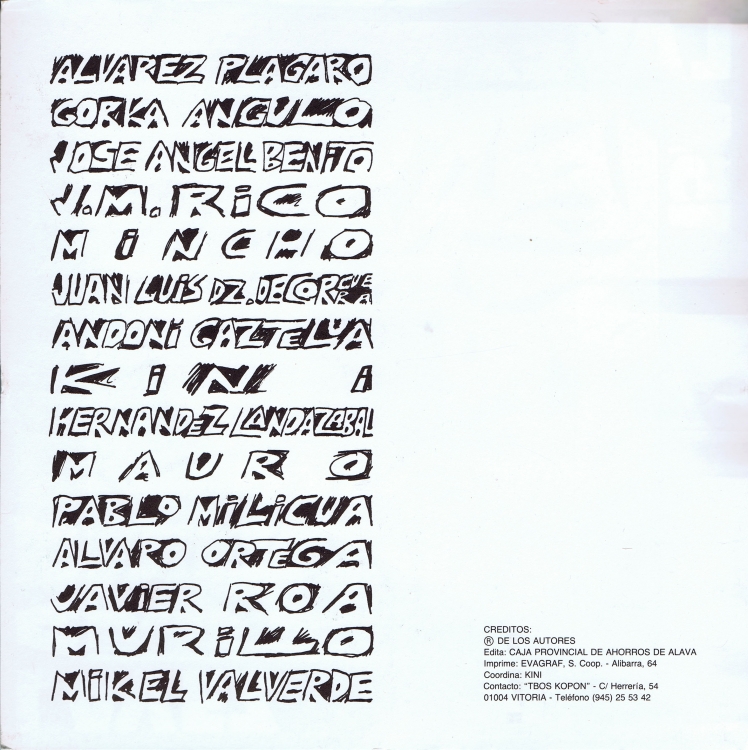 ALVAREZ PLAGARO
GORKA ANGULO
JOSE ANGEL BENITO
J.M. RiCO
MiNCHO
JUAN LUiS DZ. DE CORCUERRA
ANDONi GAZTELUA
KiNi
HERNANDEZ LANDAZABAL
MAURO
PABLO MiLiCUA
ALVARO ORTEGA
JAViER ROA
MURiLLO
MiKEL VALVERDE
CREDITOS:
Ⓡ DE LOS AUTORES
Edita: CAJA PROVINCIAL DE AHORROS DE ALAVA
Imprime: EVAGRAF, S. Coop. - Alibarra, 64
Coordina: KINI
Contacto: “TBOS KOPON” - C/ Herrería, 54
01004 VITORIA - Teléfono (945) 25 53 42